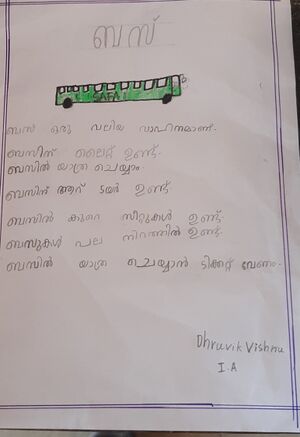 ബസ്
SAFA
ബസ് ഒരു വലിയ വാഹനമാണ്.
ബസിന് ലൈറ്റ് ഉണ്ട്.
ബസിൽ യാത്ര ചെയ്യാം.
ബസിന് ആറ് ടയർ ഉണ്ട്.
ബസിൽ കുറെ സീറ്റുകൾ ഉണ്ട്.
ബസുകൾ പല നിറത്തിൽ ഉണ്ട്.
ബസിൽ യാത്ര ചെയ്യാൻ ടിക്കറ്റ് വേണം.
Dhruvik Vishnu
I.A